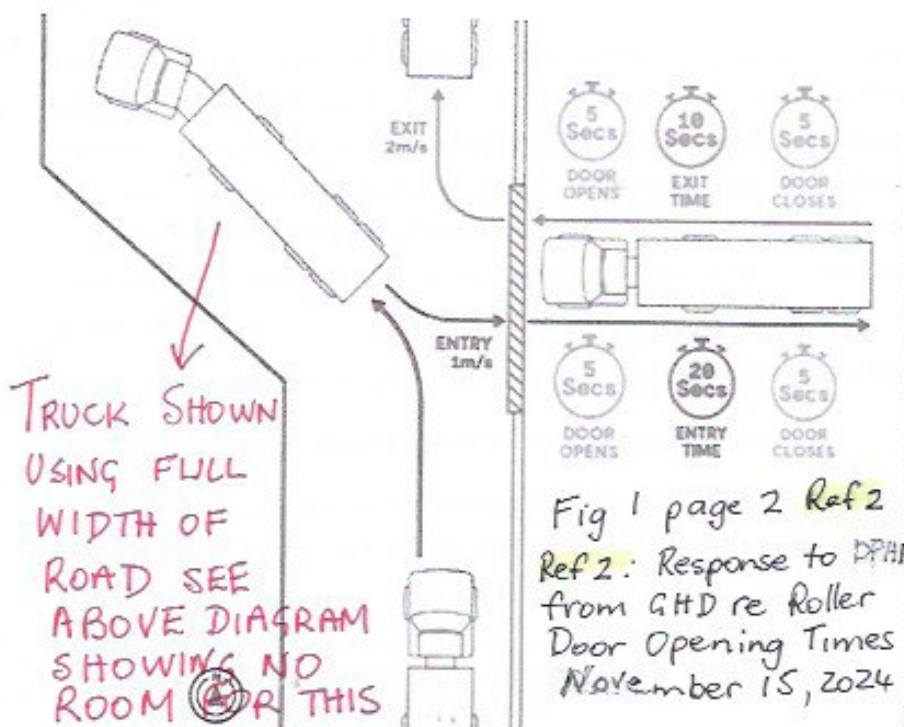 EXIT
2m/s
5
Secs
DOOR
OPENS
10
Secs
EXIT
TIME
5
Secs
DOOR
CLOSES
ENTRY
1m/s
5
Secs
DOOR
OPENS
20
Secs
ENTRY
TIME
5
Secs
DOOR
CLOSES
TRUCK SHOWN
USING FULL
WIDTH OF
ROAD SEE
ABOVE DIAGRAM
SHOWING NO
ROOM FOR THIS
Fig 1 page 2 Ref 2
Ref 2: Response to
from GHD re Roller
Door Opening Times
November 15, 2024